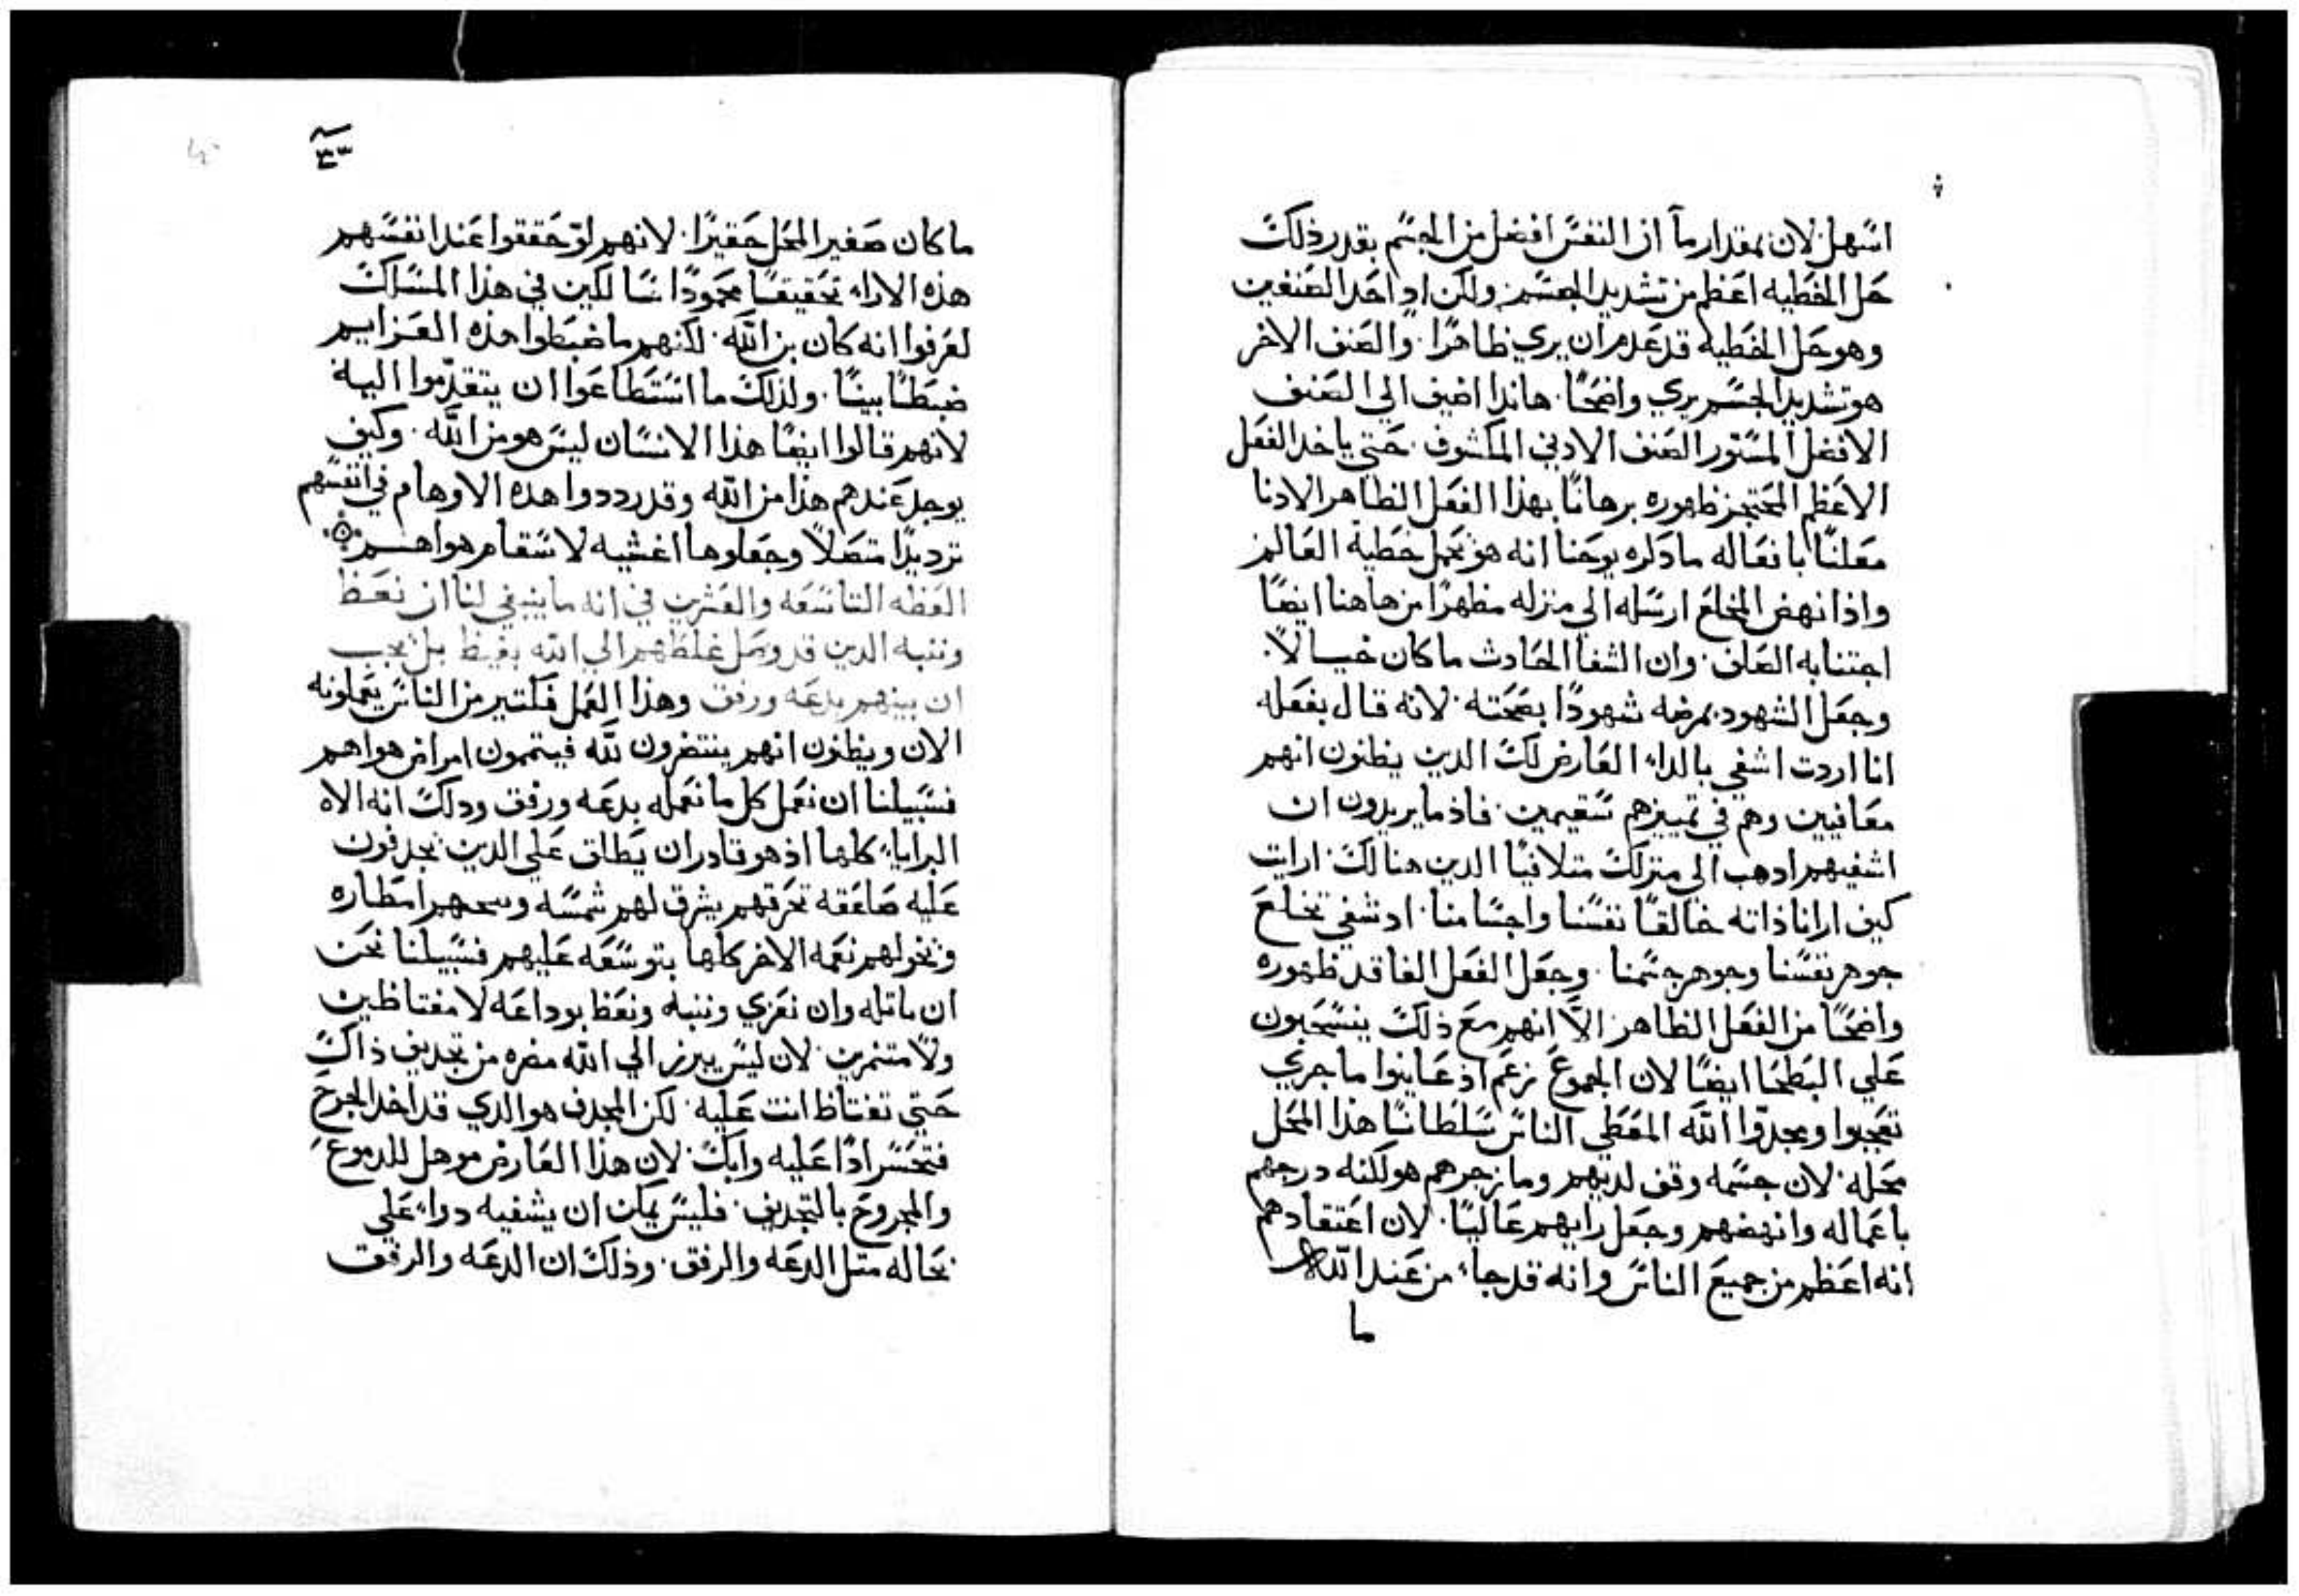 اسهل لان بمقدار ما ان النفس افضل من الجسم بقدر ذلك
حل الخطيه اعظم من تشديد الجسم ولكن اد احد الصنفين
وهو حل الخطيه قد عدم ان يري ظاهرًا والصنف الاخر
هو تشديد الجسم يري واضحًا هاندا اضيف الي الصنف
الافضل المستور الصنف الادني المكشوف حتي ياخد الفعل
الاعظم المحتجز ظهوره برهانًا بهذا الفعل الظاهر الادنا
معلنًا بافعاله ما دكره يوحنا انه هو يحمل خطية العالم
واذا نهض المخلع ارسله الي منزله مظهرًا من هاهنا ايضًا
اجتنابه الصلف وان الشفا الحادث ما كان خيالاً
وجعل الشهود بمرضه شهودًا بصحته لانه قال بفعله
انا اردت اشفي بالداء العارض لك الدين يظنون انهم
معافيين وهم في تمييزهم سقيمين فاذ ما يريدون ان
اشفيهم ادهب الي منزلك متلافيًا الدين هنالك ارايت
كيف ارانا ذاته خالقًا نفسنا واجسامنا اد شفي تخلع
جوهر نفسنا وجوهر جسمنا وجعل الفعل الفاقد ظهوره
واضحًا من الفعل الظاهر الا انهم مع ذلك ينسحبون
علي البطحا ايضًا لان الجموع زعم اذ عاينوا ما جري
تعجبوا ومجدوا الله المعطي الناس سلطانًا هذا المحل
محله لان جسمه وقف لديهم وما زجرهم هو لكنه درجهم
باعماله وانهضهم وجعل رايهم عاليًا لان اعتقادهم
انه اعظم من جميع الناس وانه قد جاء من عند الله
ما
٣٣
ما كان صغير المحل حقيرًا لانهم لو حققوا عند انفسهم
هذه الاراء تحقيقًا محمودًا سالكين في هذا المسلك
لعرفوا انه كان بن الله لكنهم ما ضبطوا هذه العزايم
ضبطًا بينًا ولذلك ما استطاعوا ان يتقدموا اليه
لانهم قالوا ايضًا هذا الانسان ليس هو من الله وكيف
يوجد عندهم هذا من الله وقد رددوا هده الاوهام في انفسهم
ترديدًا متصلاً وجعلوها اغشيه لاسقام هواهم
العظه التاسعه والعشرين في انه ما ينبغي لنا ان نعظ
وننبه الدين قد وصل غلظهم الي الله بغيظ بل يجب
ان ينبهم بدعه ورفق وهذا العمل فكتير من الناس يعملونه
الان ويظنون انهم ينتصرون لله فيتممون امراض هواهم
فسبيلنا ان نعمل كل ما نعمله بدعه ورفق ودلك انه الاه
البرايا كلها اذ هو قادر ان يطلق علي الدين يجدفون
عليه صاعقه تحرقهم يشرق لهم شمسه امطاره
ويخولهم نعمه الاخر كلها بتوسعه عليهم فسبيلنا نحن
ان ماتله وان نعزي وننبه ونعظ بوداعه لا مغتاظين
ولا متنمرين لان ليس يبرز الي الله مضره من تجديف ذاك
حتي تغتاظ انت عليه لكن المجدف هو الدي قد اخد الجرح
فتحسر ادًا عليه وابك لان هذا العارض موهل للدموع
والمجروح بالتجديف فليس يمكن ان يشفيه دواء علي
بحاله متل الدعه والرفق وذلك ان الدعه والرفق